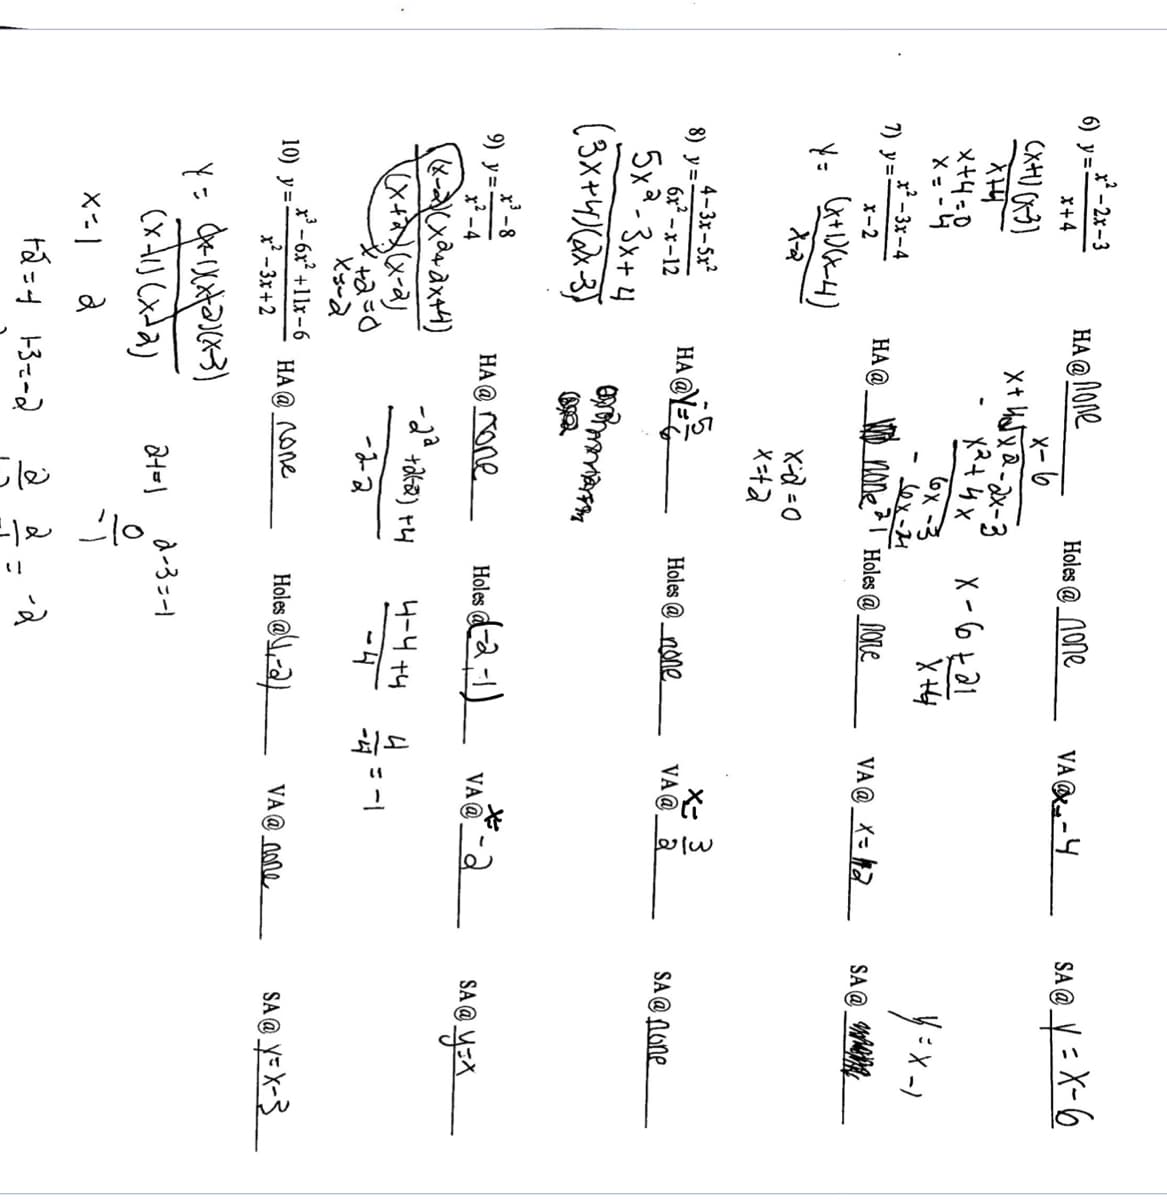 6) y = (x² - 2x - 3)/(x + 4) HA @ none Holes @ none VA @ x = -4 SA @ y = x - 6
(x+1)(x-3)
x+4
x+4=0
x = -4
x - 6
x+4 √x2 - 2x - 3
- x² + 4x
6x - 3
- 6x - 24
21
x - 6 + 21/(x+4)
7) y = (x² - 3x - 4)/(x - 2) HA @ none Holes @ none VA @ x = 2 SA @
y = x - 1
y = (x+1)(x-4)
x-2
x-2=0
x=+2
8) y = (4 - 3x - 5x²)/(6x² - x - 12) HA @ y = -5/6 Holes @ none VA @ x = 3/2 SA @ none
5x² - 3x + 4
(3x+4)(2x-3)
9) y = (x³ - 8)/(x² - 4) HA @ none Holes @ (-2, -1) VA @ x = -2 SA @ y=x
(x-2)(x²+2x+4)
(x+2)(x-2)
x+2=0
x=-2
-2² + 2(-2) + 4
-2-2
4-4+4
-4
4/-4 = -1
10) y = (x³ - 6x² + 11x - 6)/(x² - 3x + 2) HA @ none Holes @ (1,-2) VA @ none SA @ y = x-3
y = (x-1)(x-2)(x-3)
(x-1)(x-2)
x=1 2
2-1=1 2-3=-1
0/-1
1-2=-1 1-3=-2
2/-1 = -2